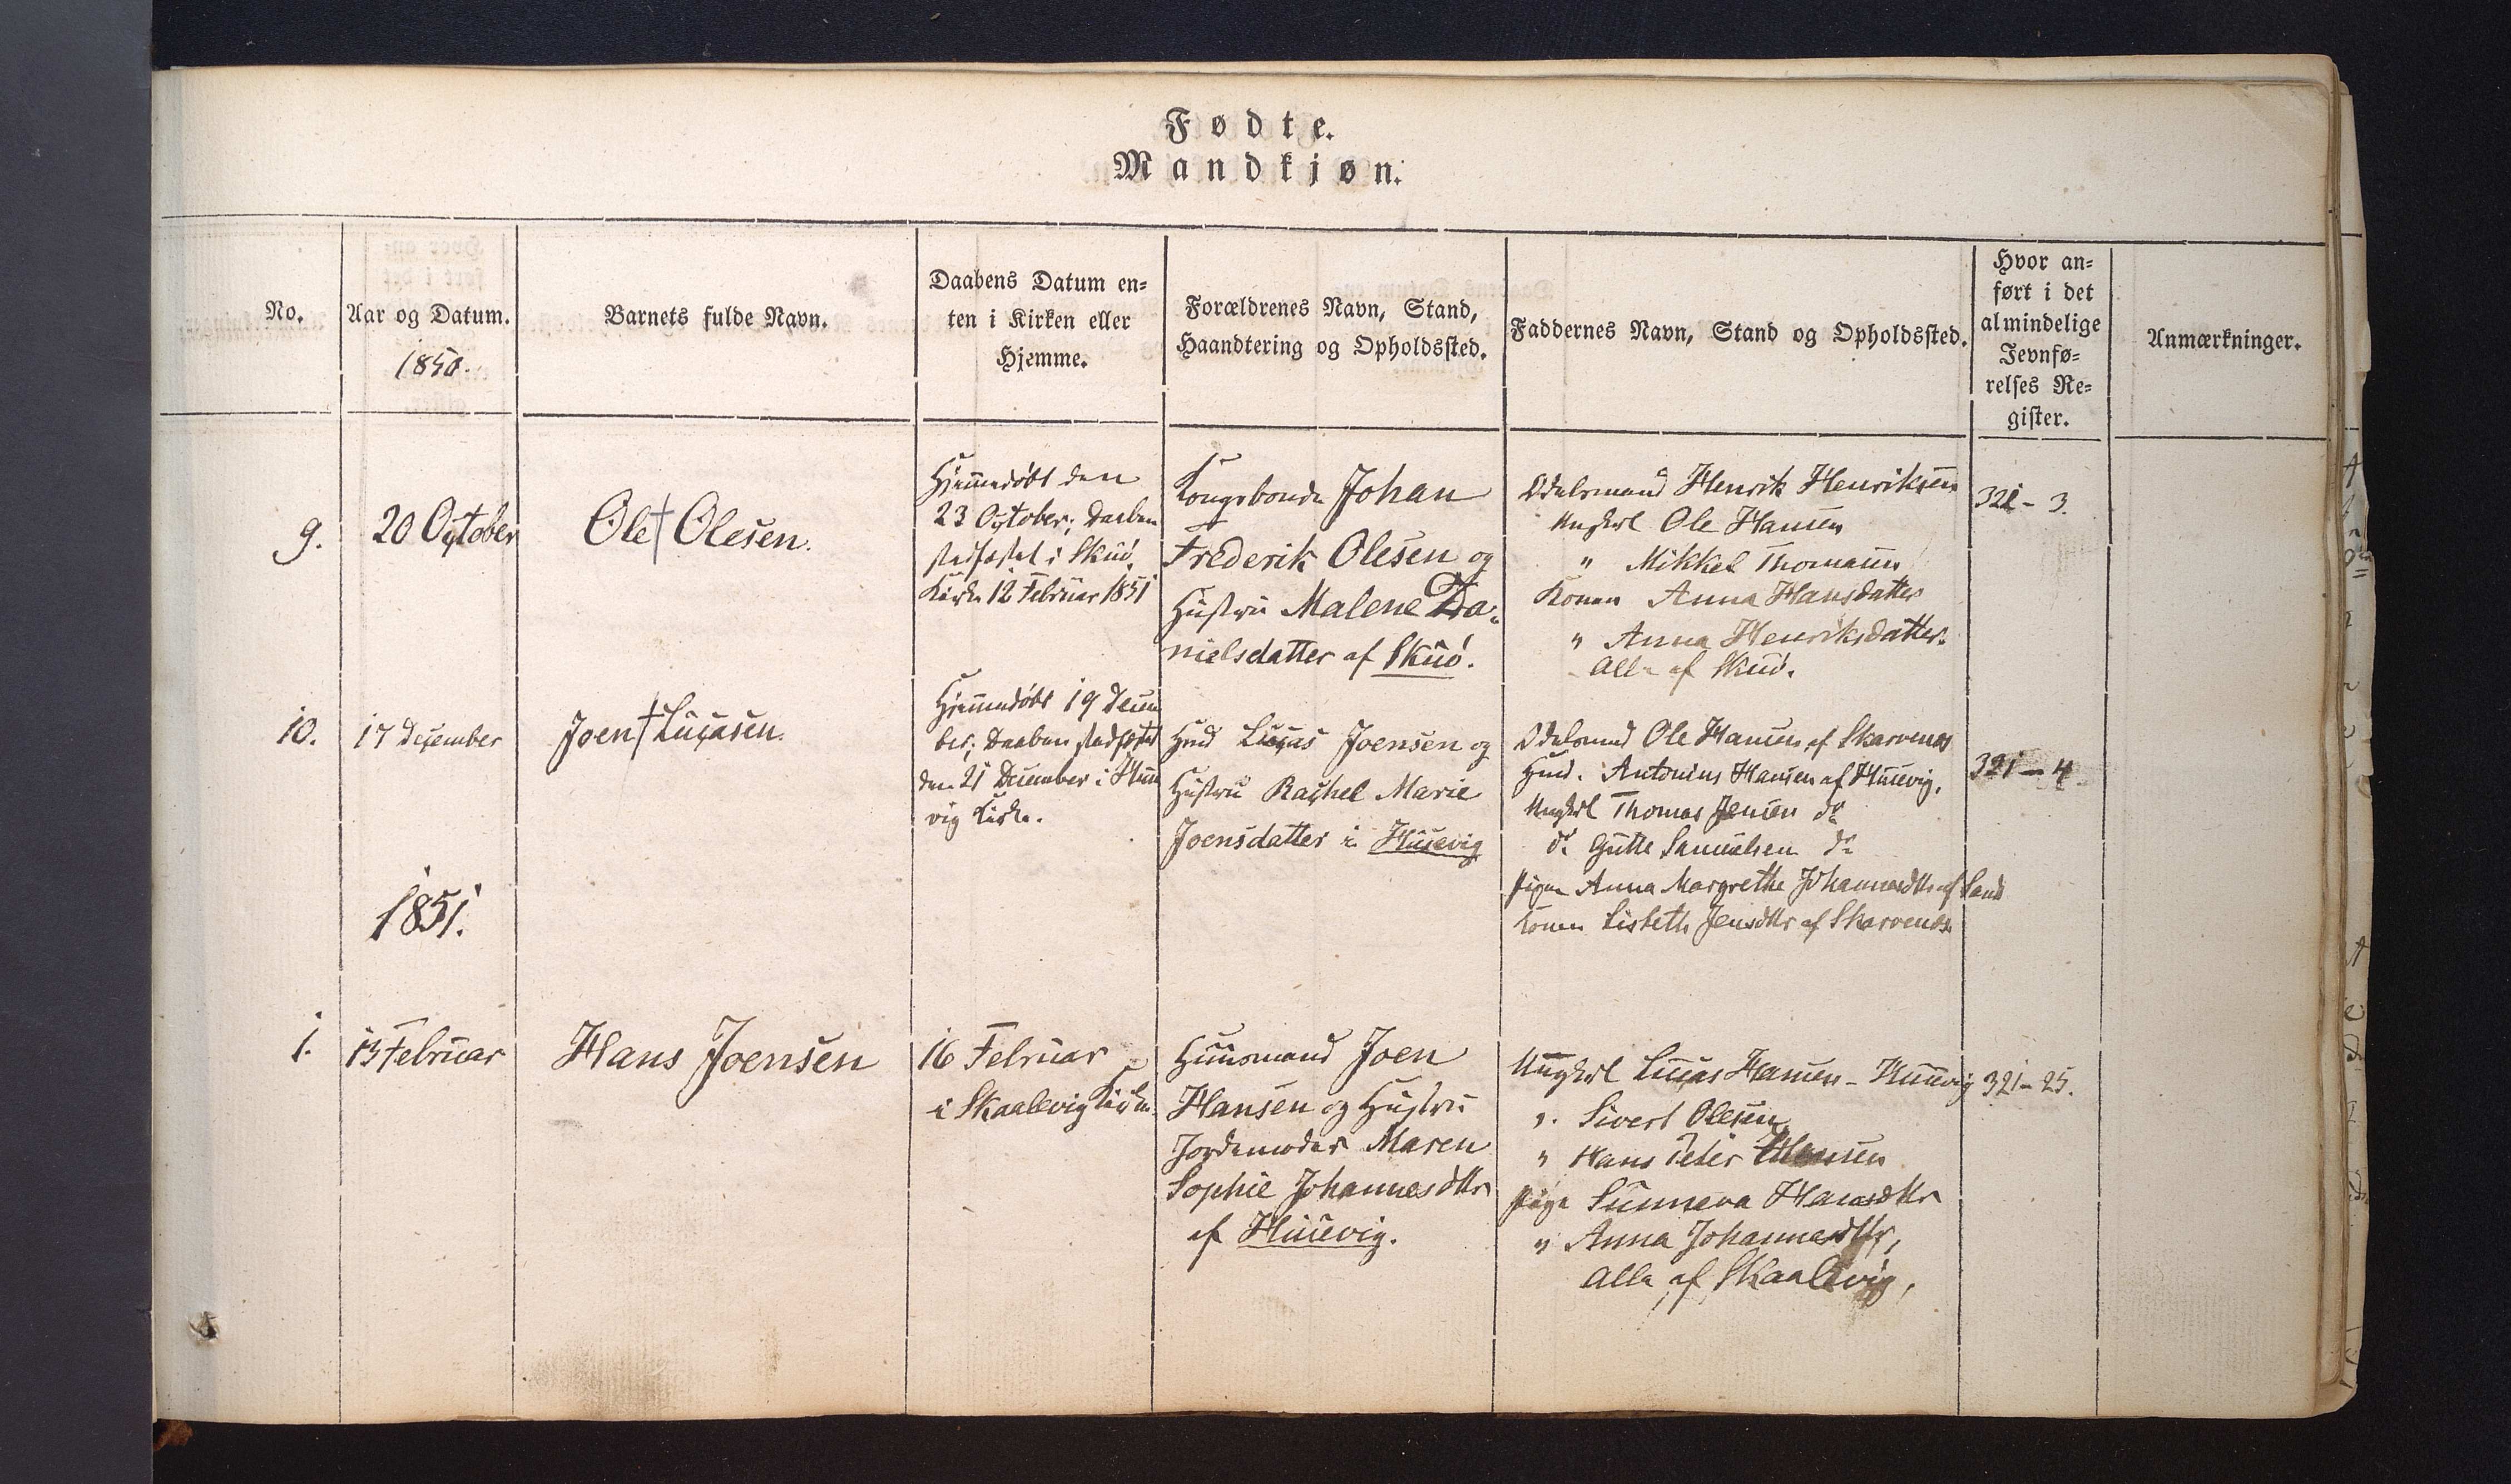 Fødte.
Mandkjøn.
No.
Aar og Datum.
1850.
Barnets fulde Navn.
Daabens Datum en-
ten i Kirken eller
Hjemme.
Forældrenes Navn, Stand,
Haandtering og Opholdssted.
Faddernes Navn, Stand og Opholdssted.
Hvor an-
ført i det
almindelige
Jevnfø-
relses Re-
gister.
Anmærkninger.
9.
20 October
Ole † Olesen.
Hjemmedøbt den
23 October; Daaben
stadfæstet i Skuø
Kirke 12 Februar 1851
Kongsbonde Johan
Frederik Olesen og
Hustru Malene Da-
nielsdatter af Skuø.
Odelsmand Henrik Henriksen
Ungkarl Ole Hansen
" Mikkel Thomasen
Konen Anna Hansdatter
" Anna Henriksdatter.
Alle af Skuø.
321 - 3.
10.
17 December
Joen † Lucasen.
Hjemmedøbt 19 Decem
ber; Daaben stadfæstet
den 21 December i Huse
vig Kirke.
Hmd Lucas Joensen og
Hustru Rachel Marie
Joensdatter i Husevig
Odelsmand Ole Hansen af Skarvenes
Hmd. Antonius Hansen af Husevig,
Ungkarl Thomas Jensen do
do Gutte Samuelsen do
Pigen Anna Margrethe Johannesdttr af Sand
Konen Lisbeth Jensdttr af Skarvenes.
321 - 4
1851.
1.
13 Februar
Hans Joensen
16 Februar
i Skaalevig Kirke.
Huusmand Joen
Hansen og Hustru
Jordemoder Maren
Sophie Johannesdttr
af Husevig.
Ungkarl Lucas Hansen - Husevig
". Sivert Olesen
" Hans Peter Hansen
Pige Sunneva Hansdttr
" Anna Johannesdttr,
Alle af Skaalevig,
321 - 25.